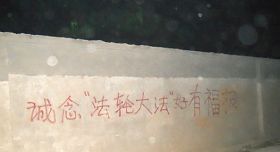 诚念“法轮大法”好有福报